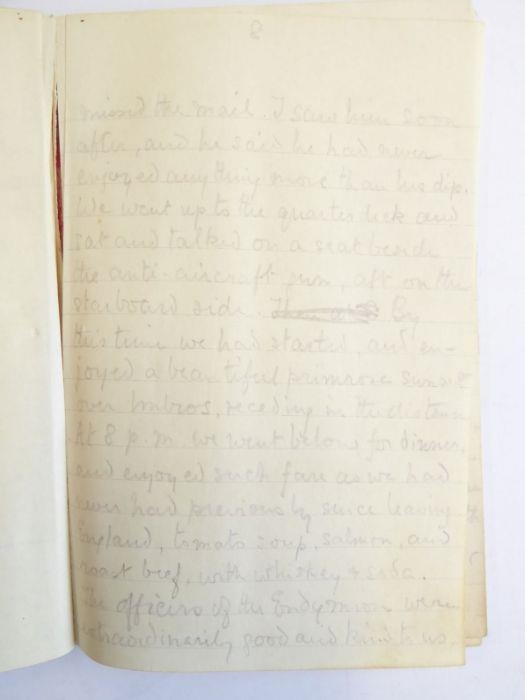 8
missed the mail. I saw him soon
after, and he said he had never
enjoyed anything more than his dip.
We went up to the quarter deck and
sat and talked on a seat beside
the anti-aircraft gun, aft on the
starboard side. By
this time we had started, and en-
joyed a beautiful primrose sunset
over Imbros, receding in the distance
At 8 p.m. we went below for dinner,
and enjoyed such fare as we had
never had previously since leaving
England, tomato soup, salmon, and
roast beef, with whiskey & soda.
The officers of the Endymion were
extraordinarily good and kind to us.